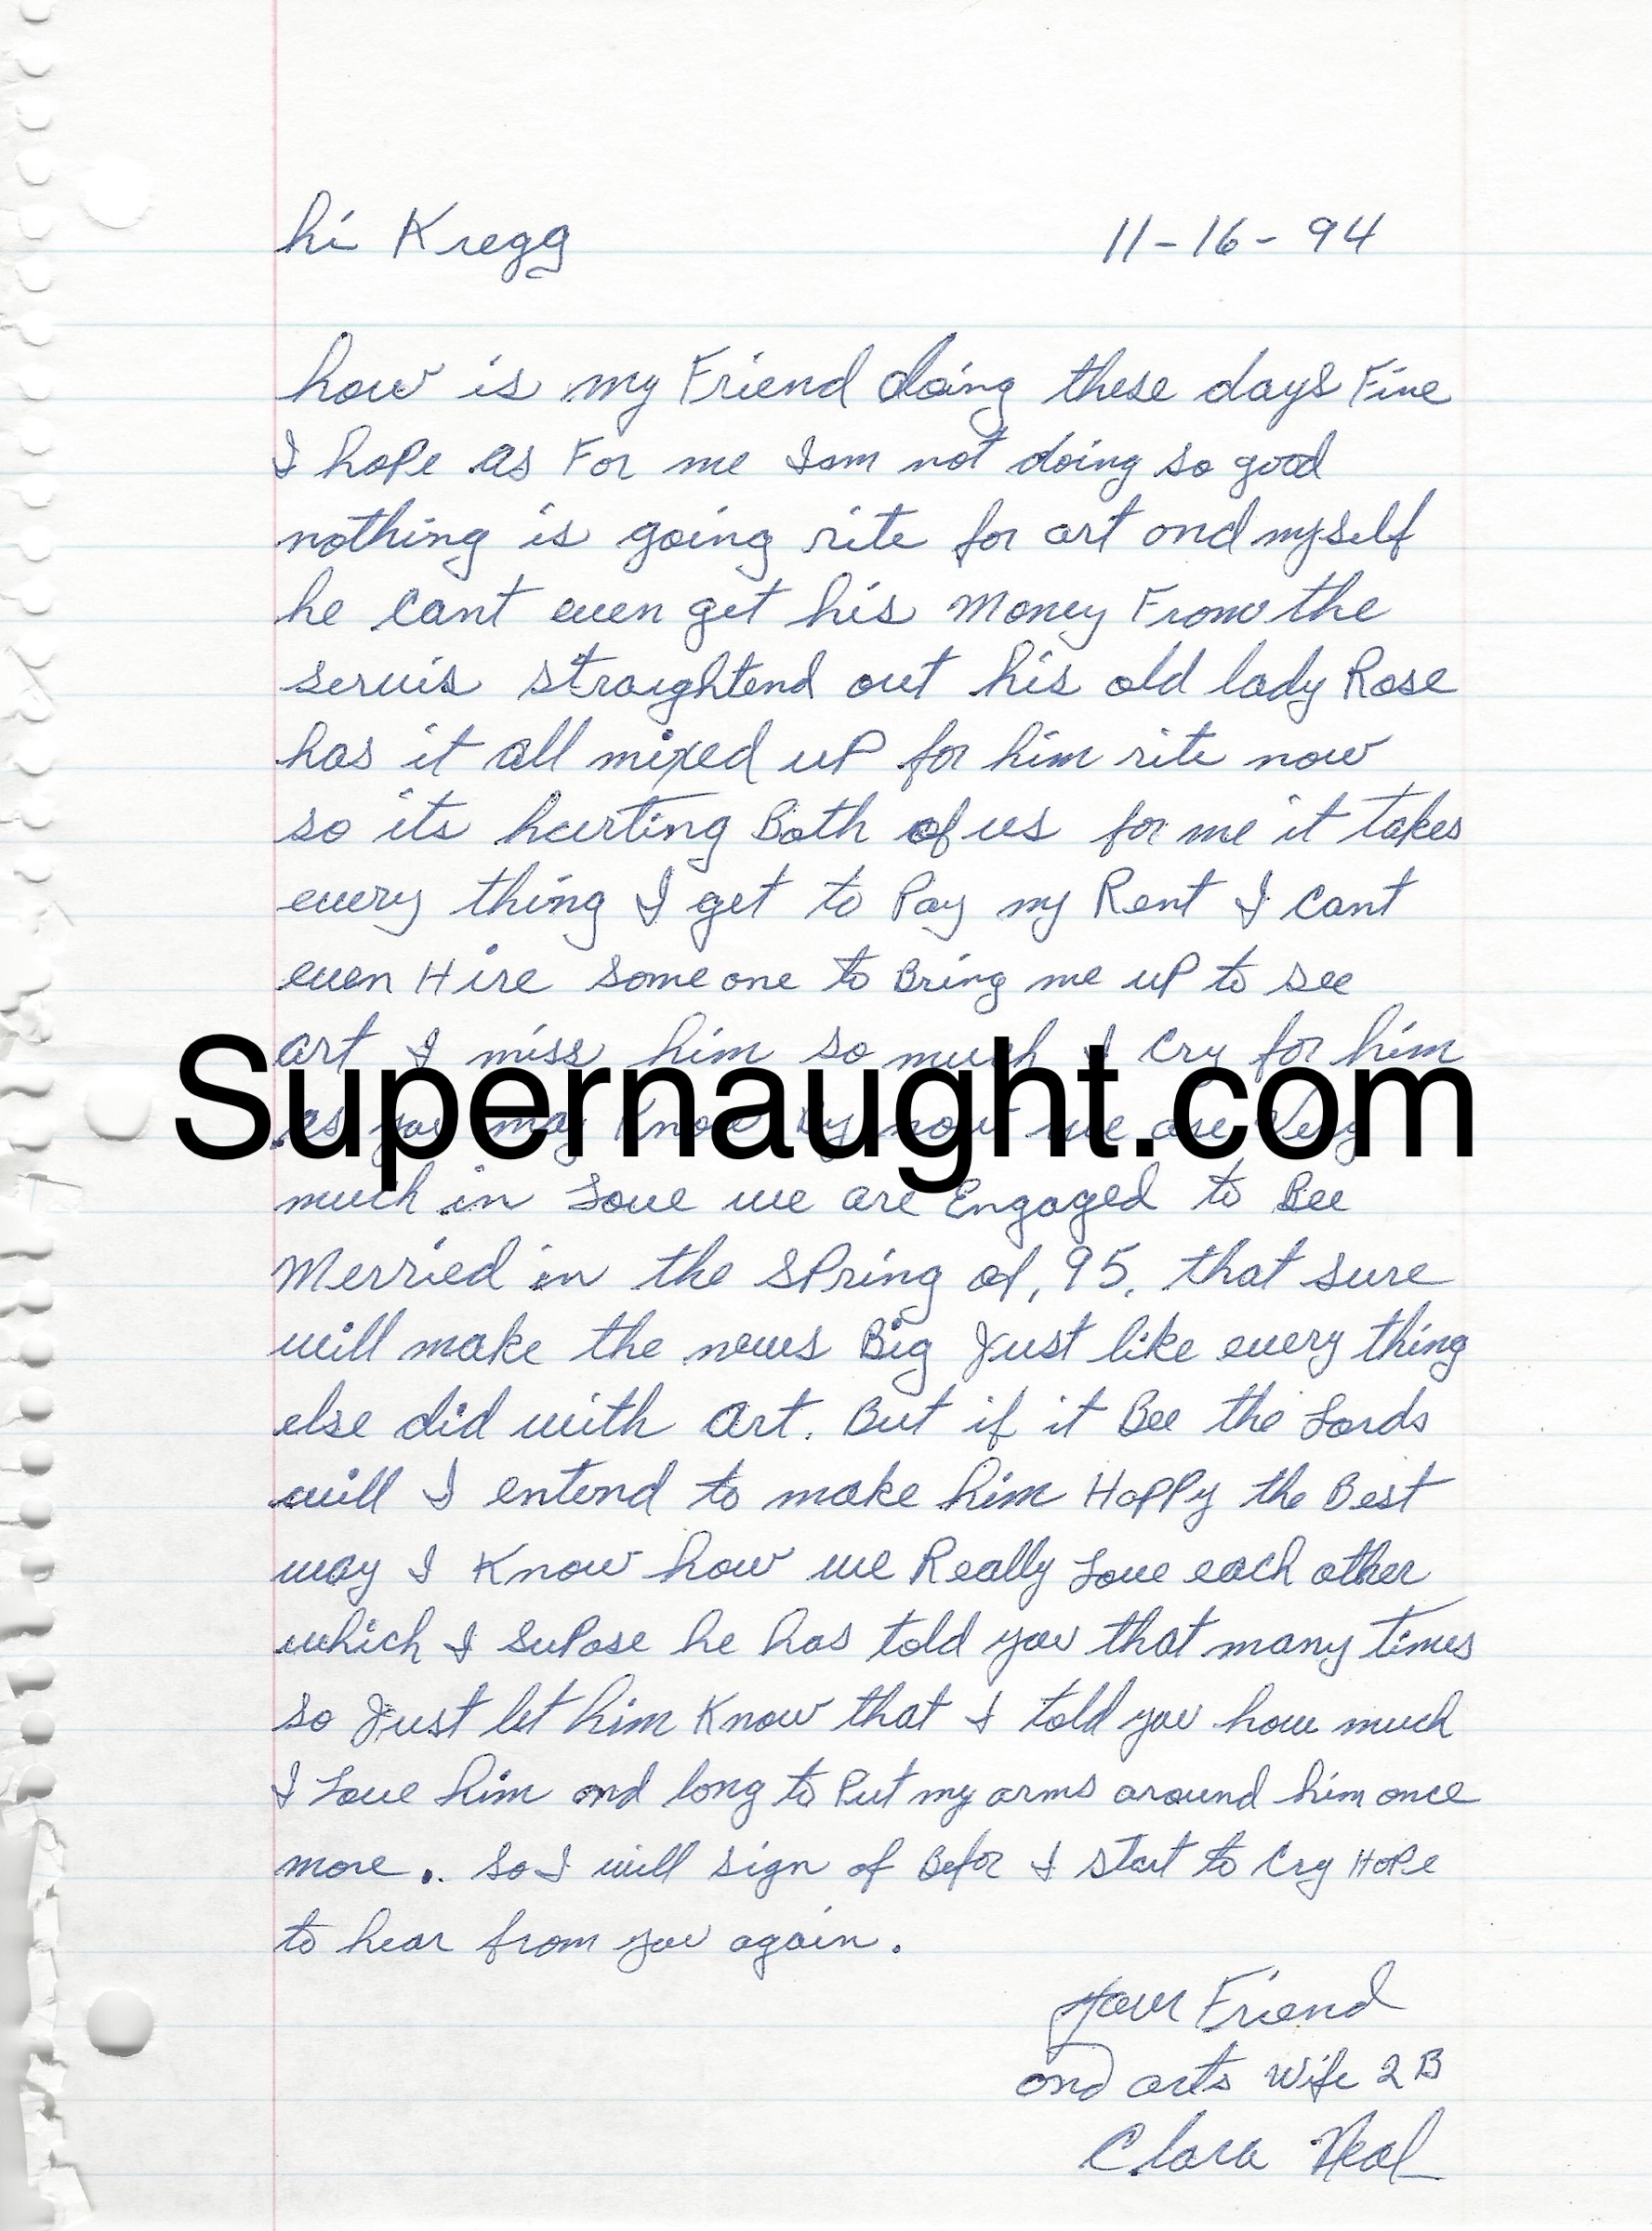 hi Kregg 11-16-94
how is my Friend doing these days Fine
I hope as For me Iam not doing so good
nothing is going rite for art and myself
he cant even get his Money From the
servis straightend out his old lady Rose
has it all mixed up for him rite now
so its hurting Both of us for me it takes
every thing I get to Pay my Rent I cant
even Hire some one to Bring me up to see
art I miss him so much I cry for him
Supernaught.com
as you may Know by now we are Very
much in Love we are Engaged to Bee
Merried in the Spring of, 95. that sure
will make the news Big Just like every thing
else did with art. But if it Bee the Lords
will I entend to make him Happy the Best
way I Know how we Really Love each other
which I supose he has told you that many times
so Just let him Know that I told you how much
I Love him and long to Put my arms around him once
more.. so I will sign of Befor I start to Cry Hope
to hear from you again.
your Friend
and arts Wife 2 B
Clara Neal